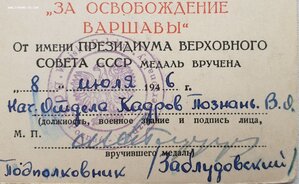 "ЗА ОСВОБОЖДЕНИЕ
ВАРШАВЫ"
ОТ ИМЕНИ ПРЕЗИДИУМА ВЕРХОВНОГО
СОВЕТА СССР МЕДАЛЬ ВРУЧЕНА
„8" июля 1946 г.
Нач. Отдела Кадров Познань. В.О.
(должность, военное звание и подпись лица,
М. П.
вручившего медаль)
Подполковник (Заблудовский)